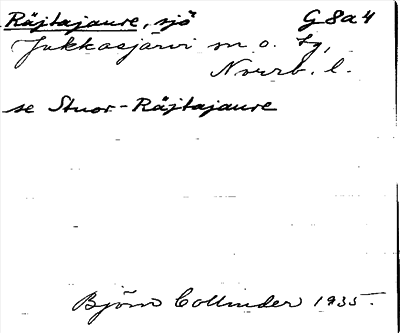 Räjtajaure, sjö G8a4
Jukkasjärvi sn o. tg,
Norrb. l.
se Stuor-Räjtajaure
Björn Collinder 1935.